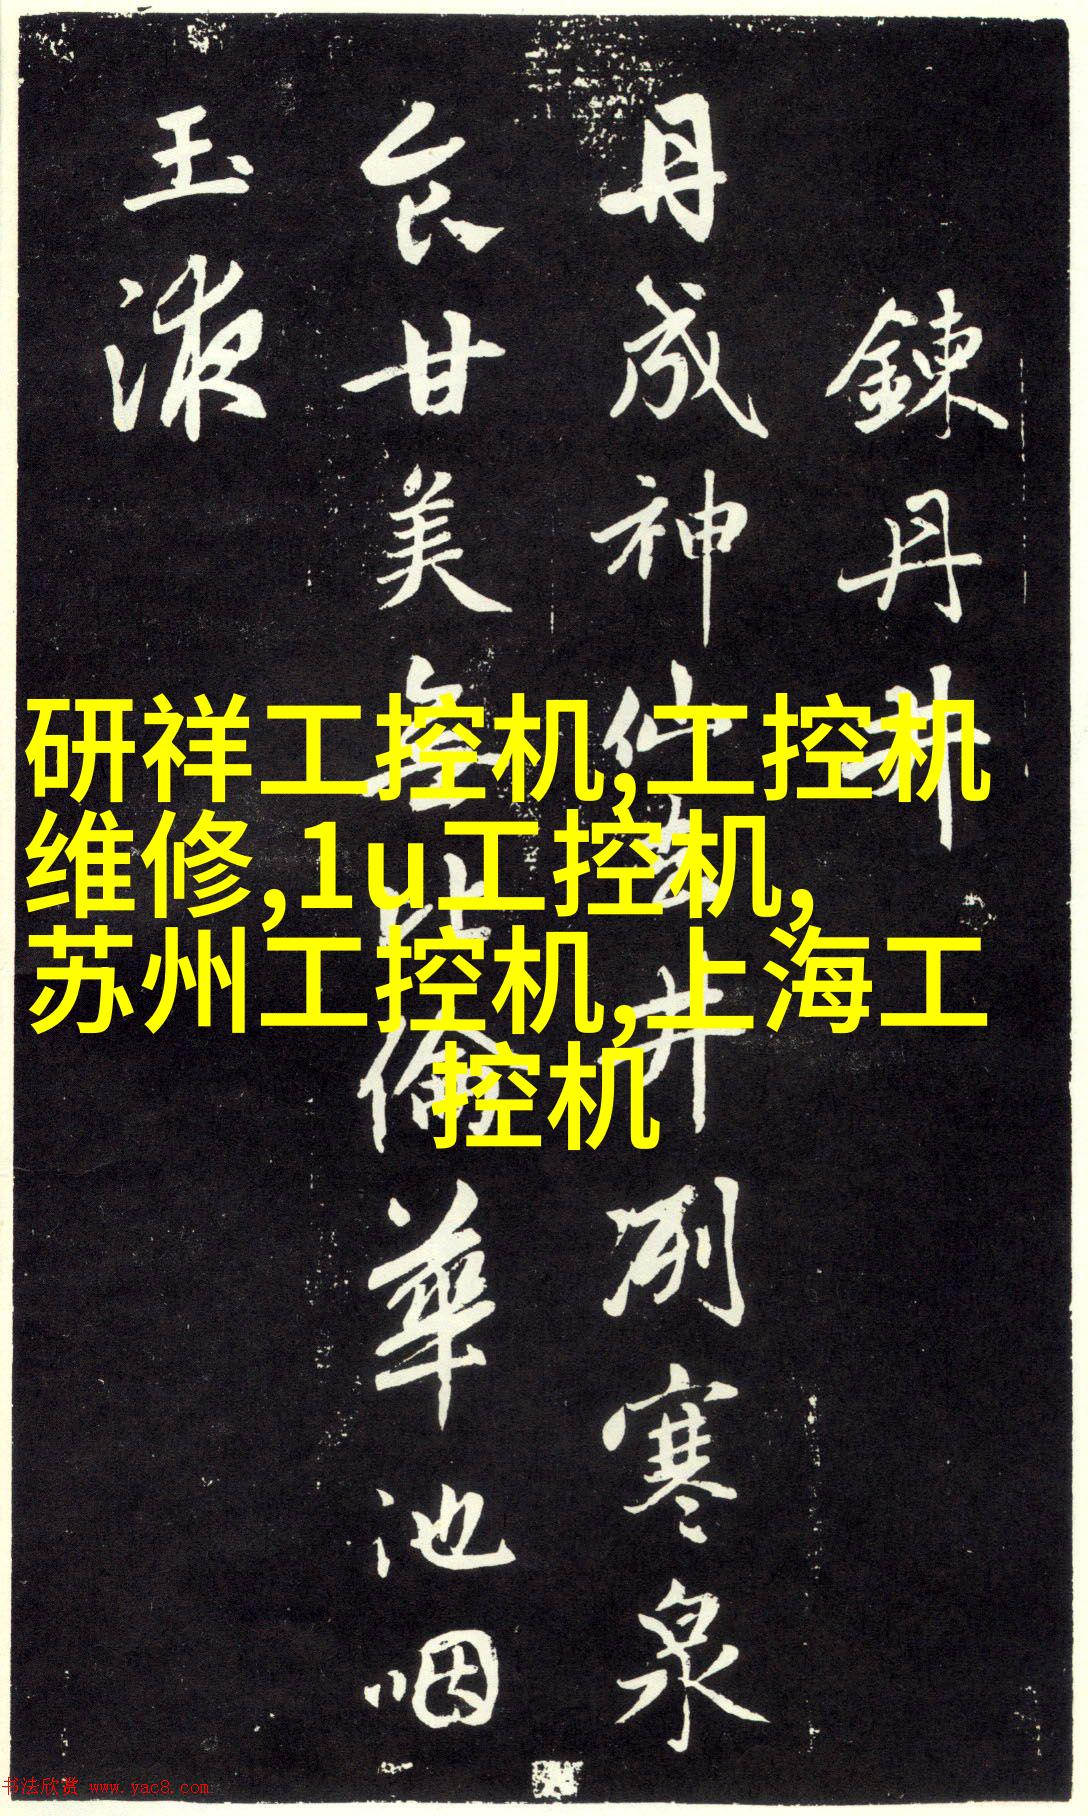 鍊丹井
丹成神仙去井冽寒泉
食甘美無比倫華池咽
玉液
研祥工控机,工控机
维修,1u工控机,
苏州工控机,上海工
控机
书法欣赏 www.yac8.com